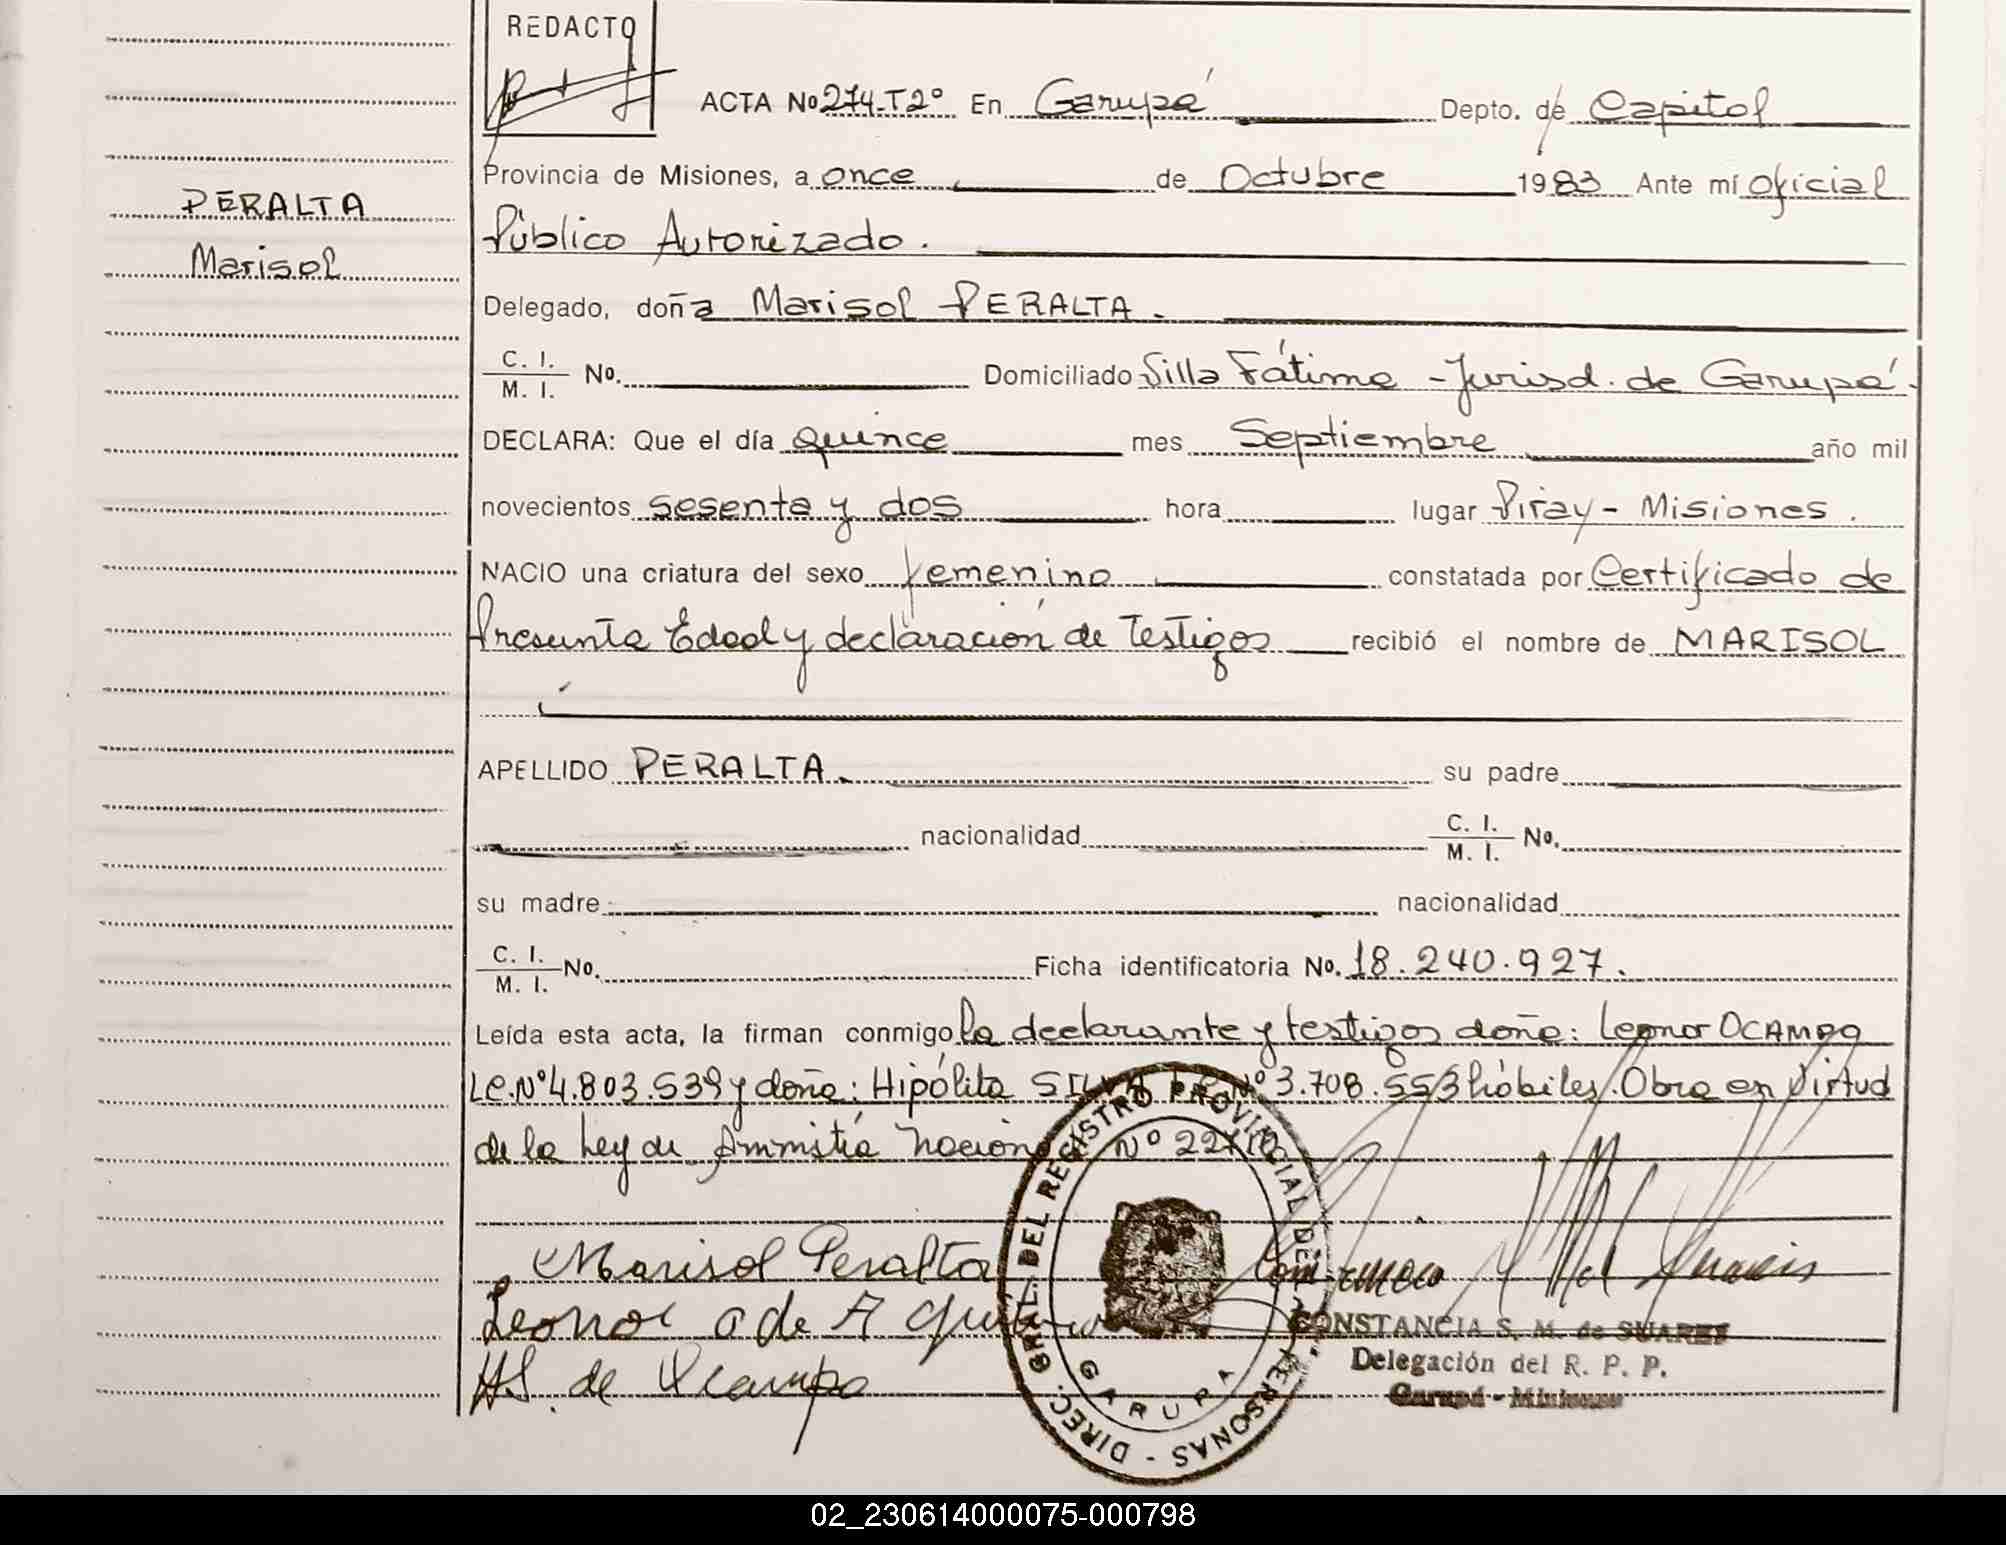 REDACTO
ACTA No 274-T2º En Garupá Depto. de Capitol
PERALTA
Marisol
Provincia de Misiones, a once de Octubre 1983 Ante mí oficial
Público Autorizado.
Delegado, doña Marisol PERALTA.
C. I.
M. I. No. Domiciliado Villa Fátima - Jurisd. de Garupá.
DECLARA: Que el día quince mes Septiembre año mil
novecientos sesenta y dos hora lugar Piray - Misiones.
NACIO una criatura del sexo femenino constatada por Certificado de
Presunta Edad y declaración de Testigos recibió el nombre de MARISOL
APELLIDO PERALTA. su padre
nacionalidad C. I.
M. I. No.
su madre nacionalidad
C. I.
M. I. No. Ficha identificatoria No. 18.240.927.
Leída esta acta, la firman conmigo la declarante y testigos doña: Leonor OCAMPO
LC.Nº4.803.539 y doña: Hipólita SILVA LC.Nº 3.708.553 hábiles. Obra en Virtud
de la Ley de Ammistía Nacional Nº
Marisol Peralta
Leonor O de A
HS. de Ocampo
DIREC. GRAL. DEL REGISTRO PROVINCIAL DE LAS PERSONAS -
GARUPA
CONSTANCIA S. M. de SUARES
Delegación del R. P. P.
Garupá - Misiones
02_230614000075-000798